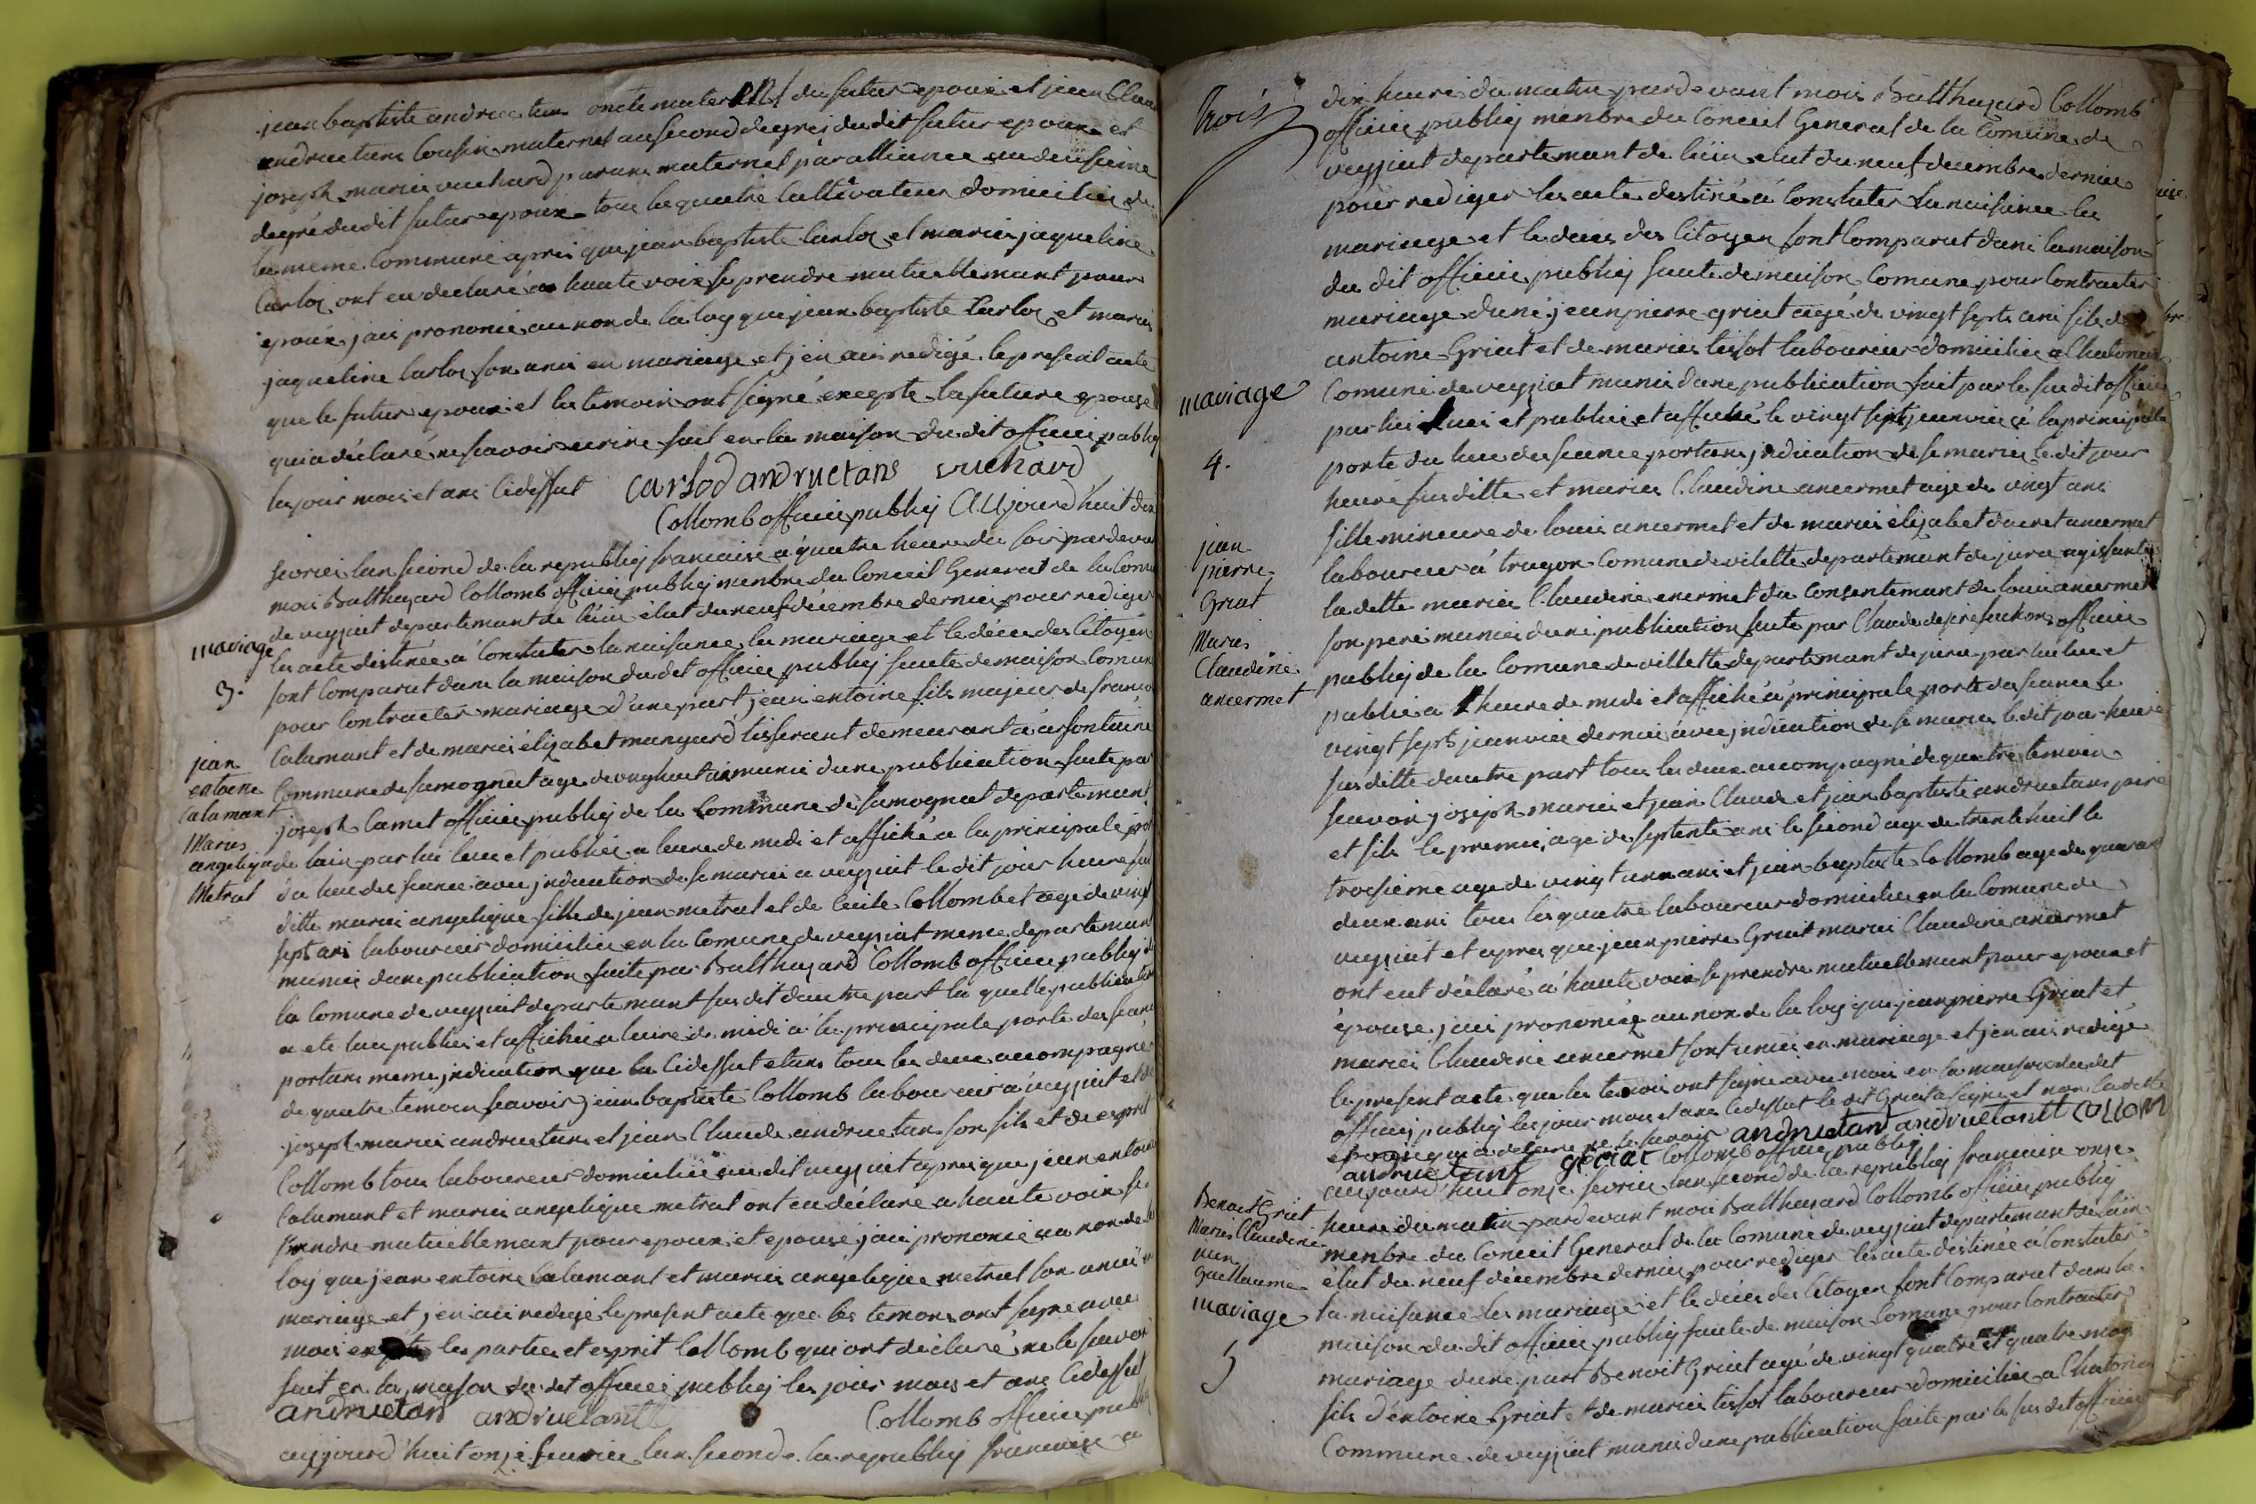 jean baptiste andruetan oncle maternel du futur epoux et jean Claude
andruetans Cousin maternel au second degrés du dit futur epoux et
joseph marie vuchard parans maternel par alliance au deusieme
degré du dit futur epoux tous les quatre Cultivateur domicilies de
la meme Commune apres que jean baptiste Carloz et marie jaqueline
Carloz ont eu declaré a haute voix se prendre mutuellemant pour
epoux, jais prononcé au non de la loy que jean baptiste Carloz et marie
jaqueline Carloz son unis en mariage et j'en ais redigé le present acte
que le futur epoux et les temoins ont signé exepte la future epouse
qui a déclaré ne scavoir ecrire fait en la maison du dit officier publiq
les jour mois et ans Cidessut Carlod andruetans vuchard
Collomb officier publiq Aujourd'huit dix
fevrier lan second de la republiq francaise a quatre heure du soir pardevant
moi Balthazard Collomb officier publiq menbre du Conceil General de la Comune
de veyziat departemant de l'ain élut du neuf décembre dernier pour rediger
les acte distinée à Constater la naisance les mariage et le décée des Citoyen
sont Comparut dans la maison du dit officier publiq faute de maison Comune
pour Contracter mariage d'une part jean entoine fils majeur de francoi
Calamant et de marie élizabet mangard tisserant demeurant à arfontaine
Commune de samognat age de vinghuit ans munie dune publication faite par
joseph Camet officier publiq de la Commune de samognat departemant
de lain par lui leue et publiée a leure de midi et affiché a la principale porte
du lieu des seance avec jndication de se marier a veyziat le dit jour heure sus
ditte marie angelique fille de jean metral et de Cecile Collombet age de vingt
sept ans laboureur domicilie en la Comune de veyziat meme departemant
munie dune publication faite par Balthazard Collomb officier publiq de
la Comune de veyziat departemant sus dit dautre part la quelle publication
a ete lue publiée et affichée a leure de midi à la principale porte des seance
portans meme jndication que la Cidessut etans tous les deux accompagné
de quatre temoin scavoir jean baptiste Collomb laboureur à veyziat et de
joseph marie andruetan et jean Claude andruetan son fils et de esprit
Collomb tous laboureur domicilie au dit veyziat apres que jean entoine
Calamant et marie angelique metral ont eu déclaré a haute voix se
prendre mutuellemant pour epoux et epouse, j'ais prononcé au non de la
loy que jean entoine Calamant et marie angelique metral son unis en
mariage et j'en ais redigé le present acte que les temons ont signe avec
moi exepté les parties et esprit Collomb qui ont déclaré ne le savoir
fait en la maison du dit officier publiq les jour mois et ans Cidessut
andruetan andruetant Collomb officier publiq
aujourd'huit onze fevrier lan second de la republiq francaise a
mariage
3.
jean
entoene
Calamant
Marie
angelique
Metral
trois
dix heure du matin pardevant mois Balthazard Collomb
officier publiq menbre du Conceil General de la Comune de
veyziat departemant de l'ain elut du neuf decembre dernier
pour rediger les acte destiné à Constater la naisance les
mariage et le deces des Citoyen sont Comparut dans la maison
du dit officier publiq faute de maison Comune pour Contracter
mariage dune jean pierre griat agé de vingt sept ans fils de
antoine Griat et de marie tissot laboureur domicilie a Chatonax
Comune de veyziat munie dune publication fait par le sus dit officier
par lui luei et publiée et affiché le vingt sept jeanvier à la principalle
porte du lieu des seance portans jndication de se marier le dit jour
heure sus ditte et marie Claudine ancermet age de vingt ans
fille mineure de louis ancermet et de marie élizabet ducret ancermet
laboureur à tragon Comune de vilette departemant de jura agissante
la ditte marie Claudine encermet du Consentemant de louis ancermet
son pere munie dune publication faite par Claude officier
publiq de la Comune de villette departemant de jura par lui lue et
publie a l'heure de midi et affiché à principale porte du seance le
vingt sept jeanvier dernier avec jndication de se marier le dit jour heure
sus ditte dautre part tous les deux accompagné de quatre temoin
scavoir joseph marie et jean Claude et jean baptiste andruetans pere
et fils le premier age de septente ans le second age de trente huit le
troisieme age de vingt un ans et jean baptiste Collomb age de quarante
deux ans tous les quatre laboureur domicilie en la Comune de
veyziat et apres que jean pierre Griat marie Claudine ancermet
ont eut déclaré à haute voix se prendre mutuellemant pour epoux et
épouse, j'ais prononcéz au non de la loy que jean pierre Griat et
marie Claudine ancermet sont unis en mariage et j'en ais redigé
le present acte que les temoin ont signe avec moi en la maison du dit
officier publiq les jour mois et ans Cidessut le dit Griat a signé et non la ditte
epouse qui a declare ne le savoir andruetant andruetant Collom
andruetans griat Collomb officier publiq
aujourd'huit onze fevrier lan second de la republiq francaise onze
heure du matin pardevant moi Balthazard Collomb officier publiq
menbre du Conceil General de la Comune de veyziat departemant de l'ain
élut du neuf décembre dernier pour rediger les acte destinée à Constater
la naisance les mariage et le décée des Citoyen sont Comparut dans la
maison du dit officier publiq faute de maison Comune pour Contracter
mariage dune part Benoit Griat agé de vingt quatre ans et quatre mois
fils d'entoine Griat et de marie tissot laboureur domicilie a Chatonax
Commune de veyziat munie dune publication faite par le sus dit officier
mariage
4.
jean
pierre
Griat
Marie
Claudine
ancermet
Benoit Griat
Marie Claudine
Guillaume
mariage
5